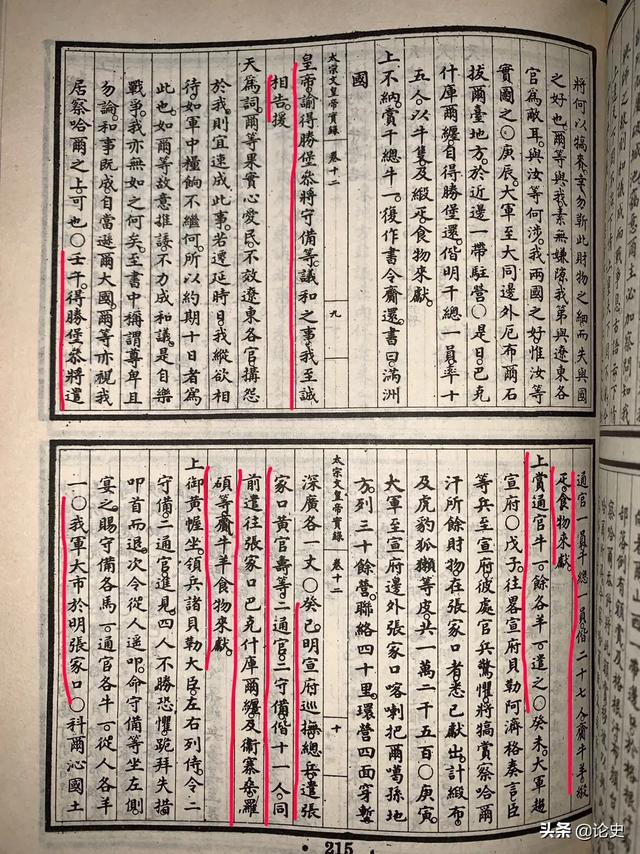 將何以犒來幸勿斬此財物之細而失與國
之好也爾等與我素無嫌隙我第與遼東各
官為敵耳與汝等何涉我兩國之好惟汝等
實圖之○庚辰大軍至大同邊外厄布爾石
拔爾臺地方於近邊一帶駐營○是日巴克
什庫爾纏自得勝堡還偕明千總一員率十
五人以牛隻及緞疋食物來獻
上不納賞千總牛一復作書令齎還書曰滿洲
國
太宗文皇帝實錄 卷十二 九
皇帝諭得勝堡叅將守備等議和之事我至誠
相告援
天為詞爾等果實心愛民不效遼東各官搆怨
於我則宜速成此事若遲延時日我縱欲相
待如軍中糧餉不繼何所以約期十日者為
此也如爾等故意推諉不力成和議是自樂
戰爭我亦無如之何矣至書中稱謂尊卑且
勿論和事既成自當遜爾大國爾等亦視我
居察哈爾之上可也○壬午得勝堡叅將遣
通官一員千總一員偕二十七人齎牛羊緞
疋食物來獻
上賞通官牛一餘各羊一遣之○癸未大軍趨
宣府○戊子往畧宣府貝勒阿濟格奏言臣
等兵至宣府彼處官兵驚懼將犒賞察哈爾
汗所餘財物在張家口者悉已獻出計緞布
及虎豹狐獺等皮共一萬二千五百○庚寅
大軍至宣府邊外張家口喀喇把爾噶孫地
方列三十餘營聯絡四十里環營四面穿塹
太宗文皇帝實錄 卷十二 十
深廣各一丈○癸巳明宣府巡撫總兵遣張
家口黃官壽等二通官二守備偕十一人同
前遣往張家口巴克什庫爾纏及衛寨桑羅
碩等齎牛羊食物來獻
上御黃幄坐領兵諸貝勒大臣左右列侍令二
守備二通官進見四人不勝恐懼跪拜失措
叩首而退次令從人遥叩命守備等坐左側
宴之賜守備各馬一通官各牛一從人各羊
一○我軍大市於明張家口○科爾沁國土
215
头条 @论史